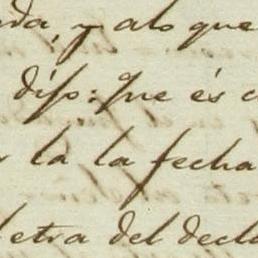 da, y alo que
dijo: Que és c
r la la fecha
letra del decla